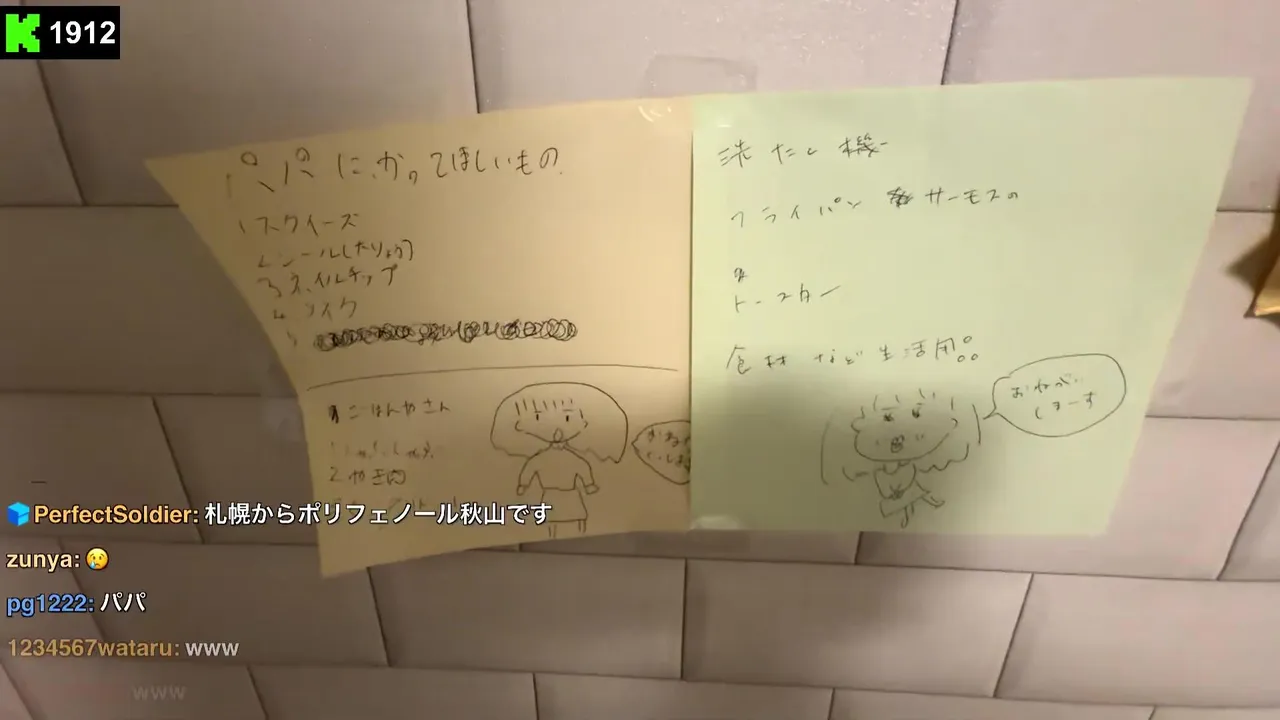 1912
パパにかってほしいもの
1 スクイーズ
2 シール(たりょう)
3 ネイルチップ
4 リスク
5
ごはんやさん
2 やき肉
洗たく機
フライパン サーモスの
トースター
食材など生活用
おねがい
しまーす
PerfectSoldier: 札幌からポリフェノール秋山です
zunya: 😢
pg1222: パパ
1234567wataru: www
www